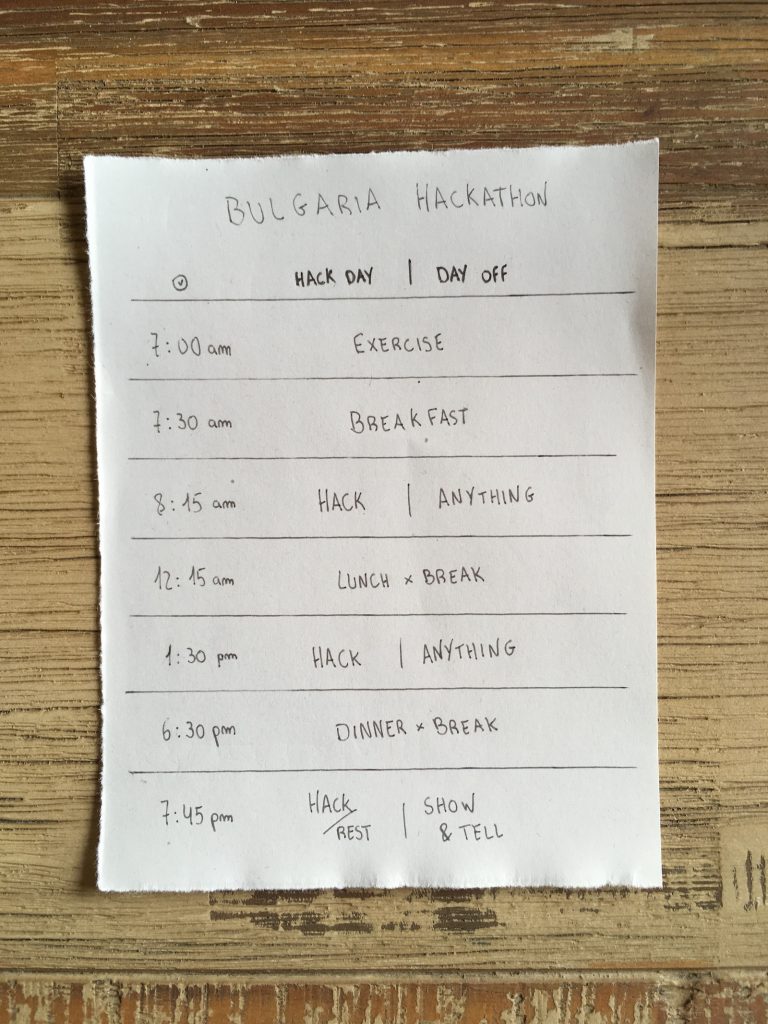 BULGARIA HACKATHON
HACK DAY | DAY OFF
7:00 am EXERCISE
7:30 am BREAKFAST
8:15 am HACK | ANYTHING
12:15 am LUNCH × BREAK
1:30 pm HACK | ANYTHING
6:30 pm DINNER × BREAK
7:45 pm HACK / REST | SHOW & TELL